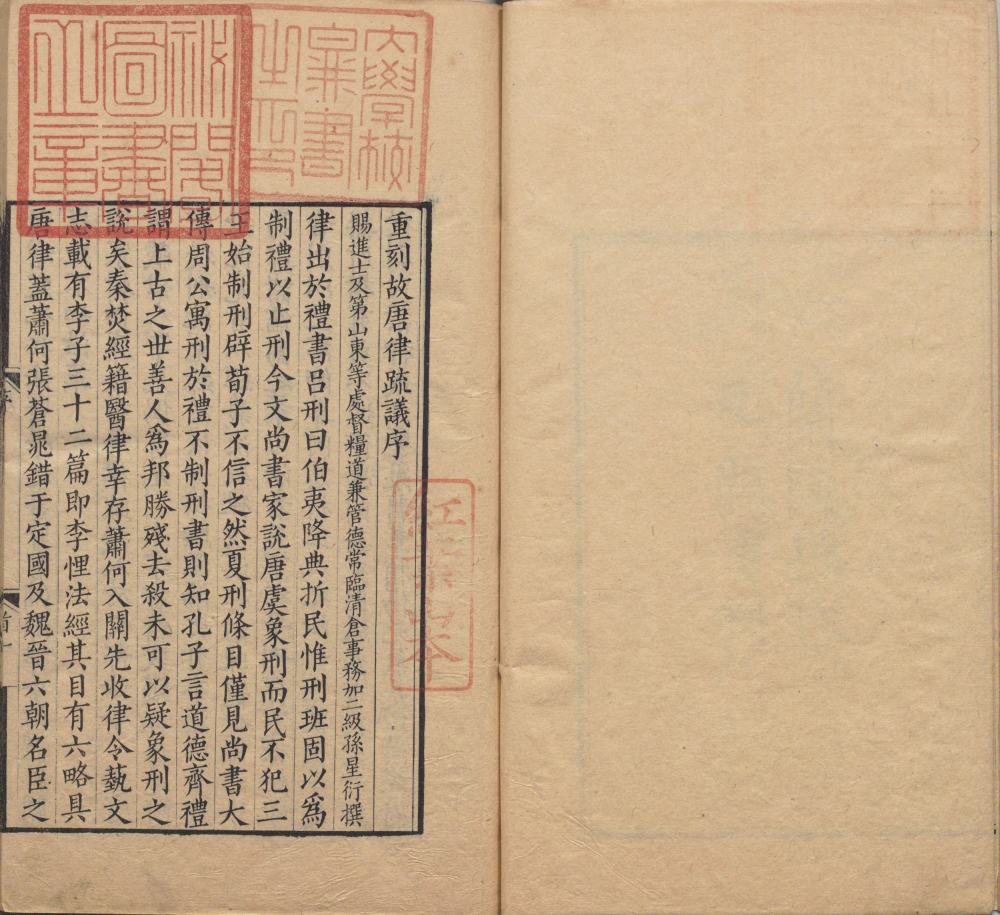 重刻故唐律疏議序
賜進士及第山東等處督糧道兼管德常臨清倉事務加二級孫星衍撰
律出於禮書呂刑曰伯夷降典折民惟刑班固以爲
制禮以止刑今文尚書家說唐虞象刑而民不犯三
王始制刑辟荀子不信之然夏刑條目僅見尚書大
傳周公寓刑於禮不制刑書則知孔子言道德齊禮
謂上古之世善人爲邦勝殘去殺未可以疑象刑之
說矣秦焚經籍醫律幸存蕭何入關先收律令藝文
志載有李子三十二篇即李悝法經其目有六略具
唐律蓋蕭何張蒼晁錯于定國及魏晉六朝名臣之
大學校
弆書
之印
祕閣
圖書
之章